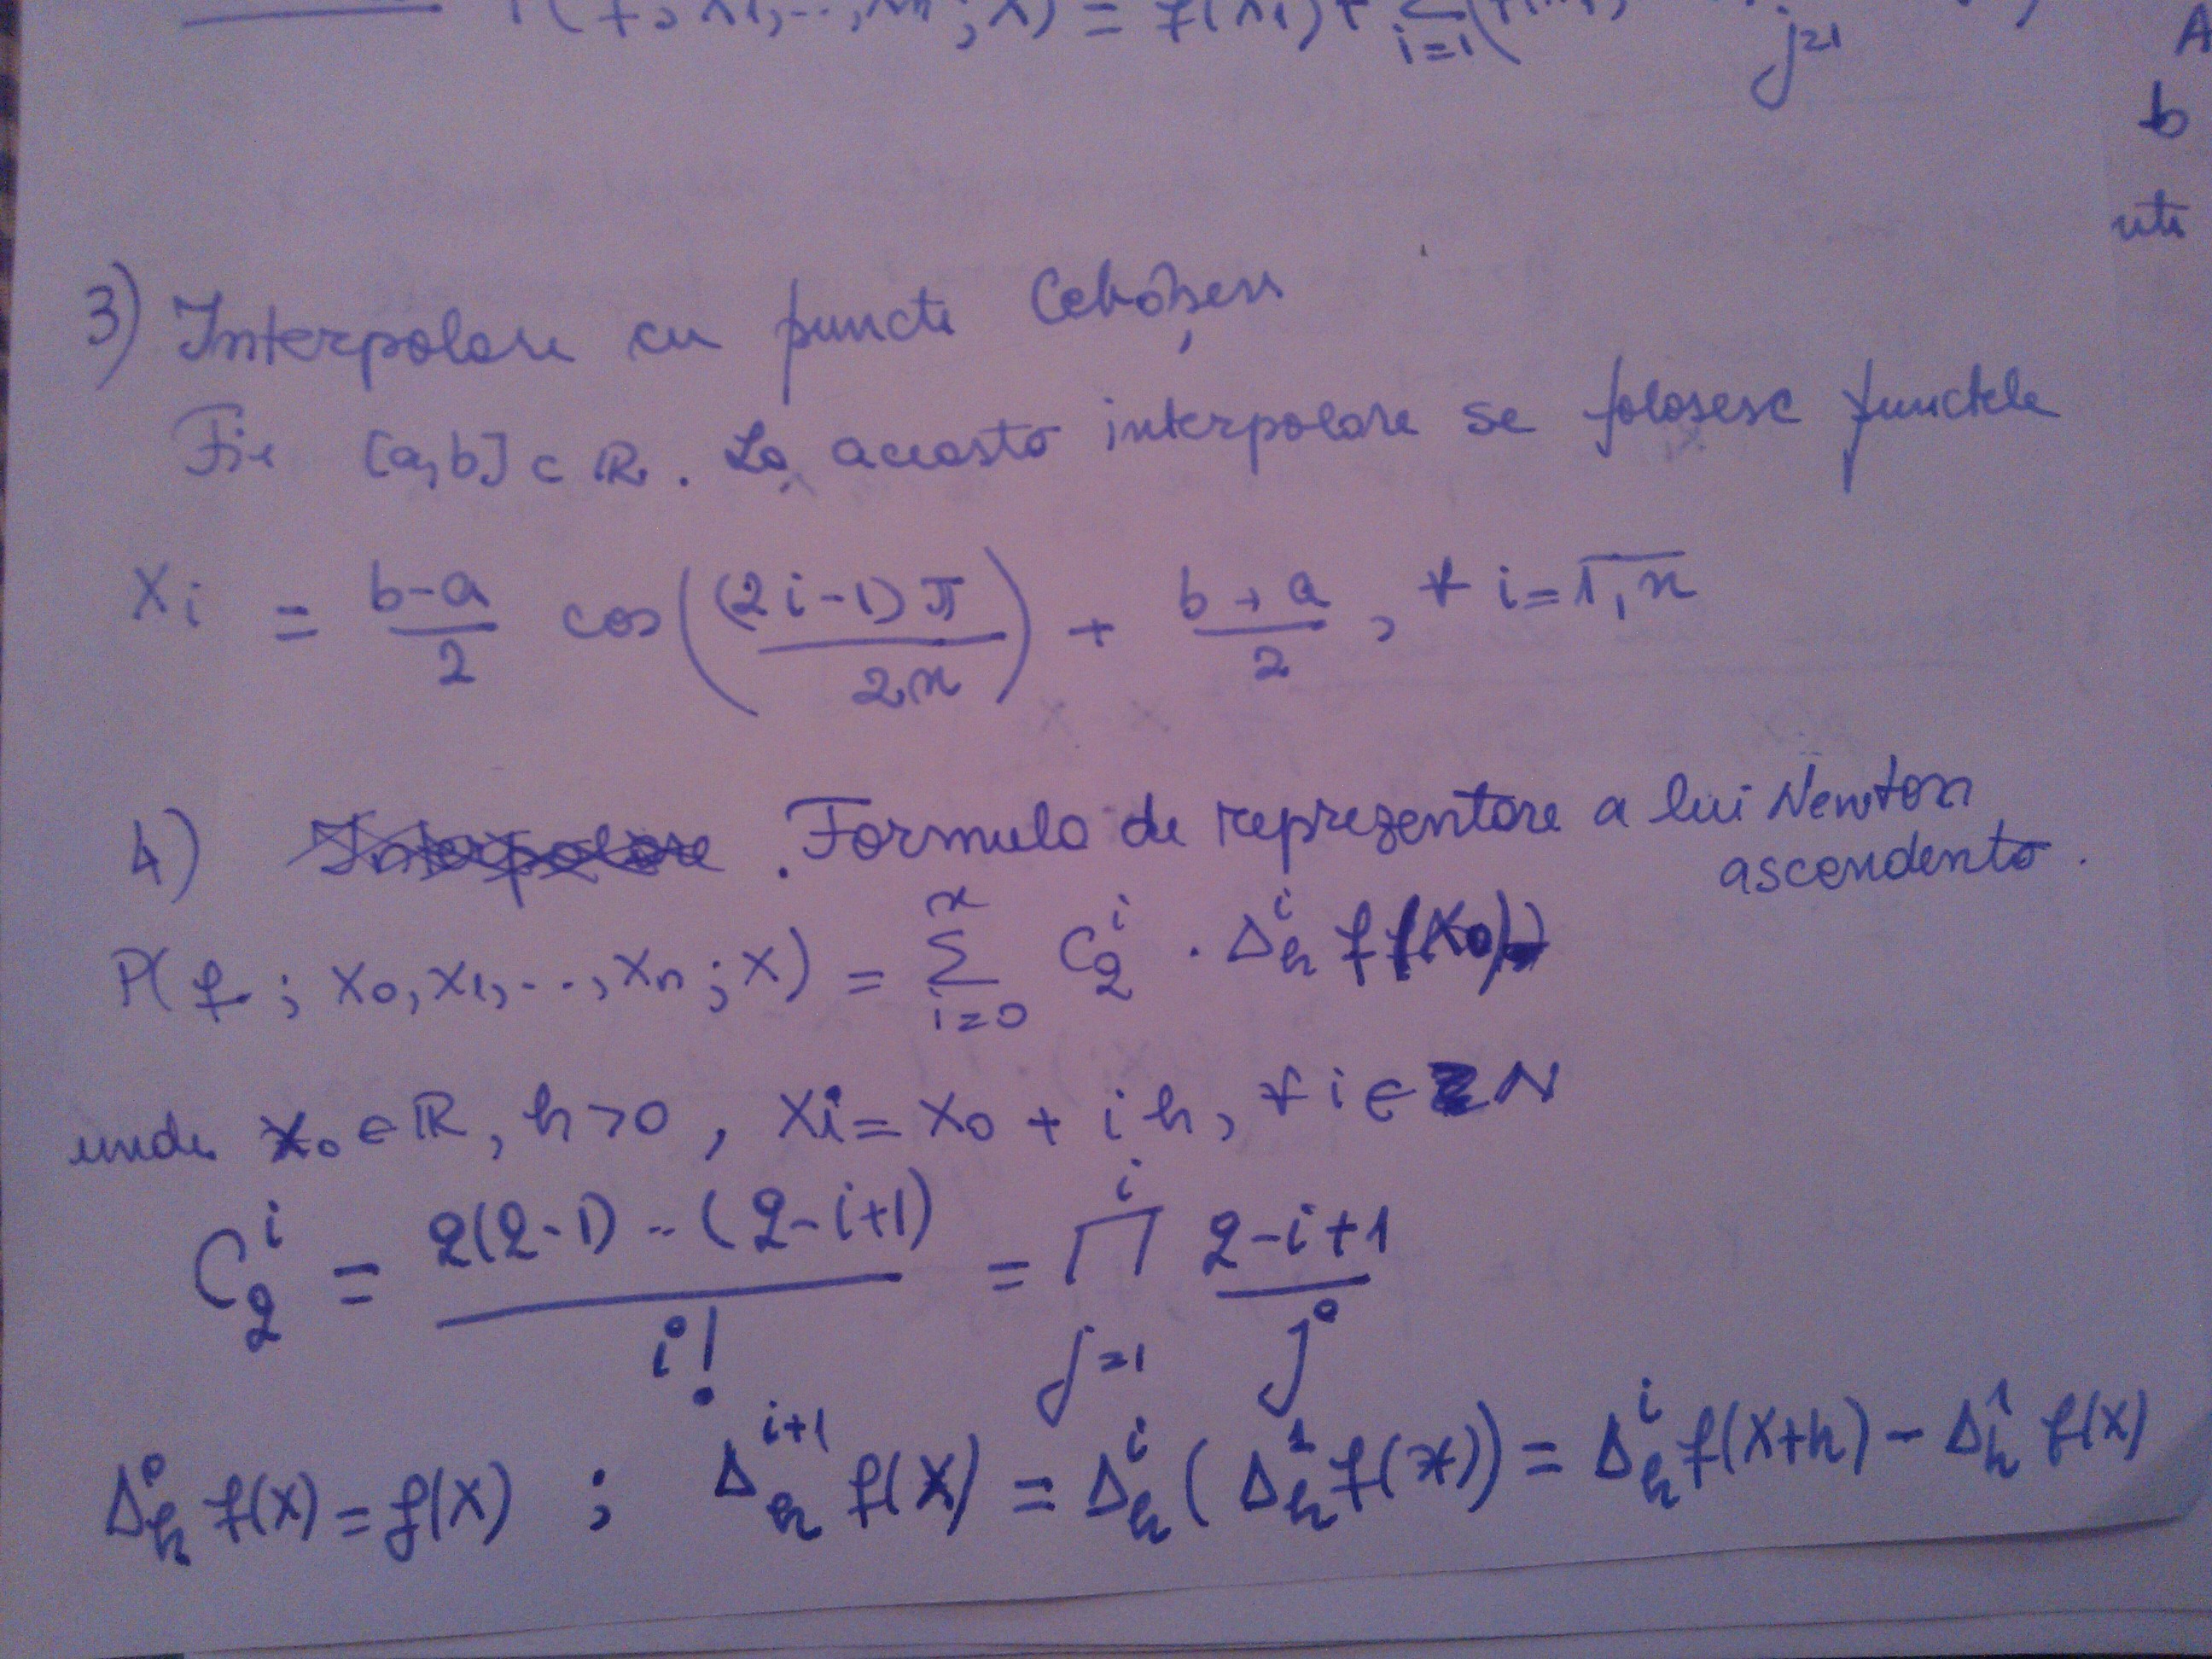 3) Interpolare cu puncte Cebâșev
Fie [a,b] ⊂ ℝ. La aceasta interpolare se folosesc punctele
xi = (b-a)/2 cos((2i-1)π/2n) + (b+a)/2, ∀ i = 1,n
4) Formula de reprezentare a lui Newton
ascendentă.
P(f; x0, x1, ..., xn; x) = Σ_{i=0}^{n} C_q^i · Δ_h^i f(x0)
unde x0 ∈ ℝ, h>0, xi = x0 + ih, ∀ i ∈ N
C_q^i = q(q-1)..(q-i+1)/i! = Π_{j=1}^{i} (q-i+1)/j
Δ_h^0 f(x) = f(x) ; Δ_h^{i+1} f(x) = Δ_h^i (Δ_h^1 f(x)) = Δ_h^i f(x+h) - Δ_h^i f(x)